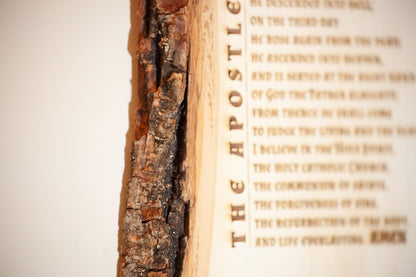 THE APOSTLE
HE DESCENDED INTO HELL,
ON THE THIRD DAY
HE ROSE AGAIN FROM THE DEAD,
HE ASCENDED INTO HEAVEN,
AND IS SEATED AT THE RIGHT HAND
OF GOD THE FATHER ALMIGHTY,
FROM THENCE HE SHALL COME
TO JUDGE THE LIVING AND THE
I BELIEVE IN THE HOLY SPIRIT,
THE HOLY CATHOLIC CHURCH,
THE COMMUNION OF SAINTS,
THE FORGIVENESS OF SINS,
THE RESURRECTION OF THE BODY
AND LIFE EVERLASTING. AMEN